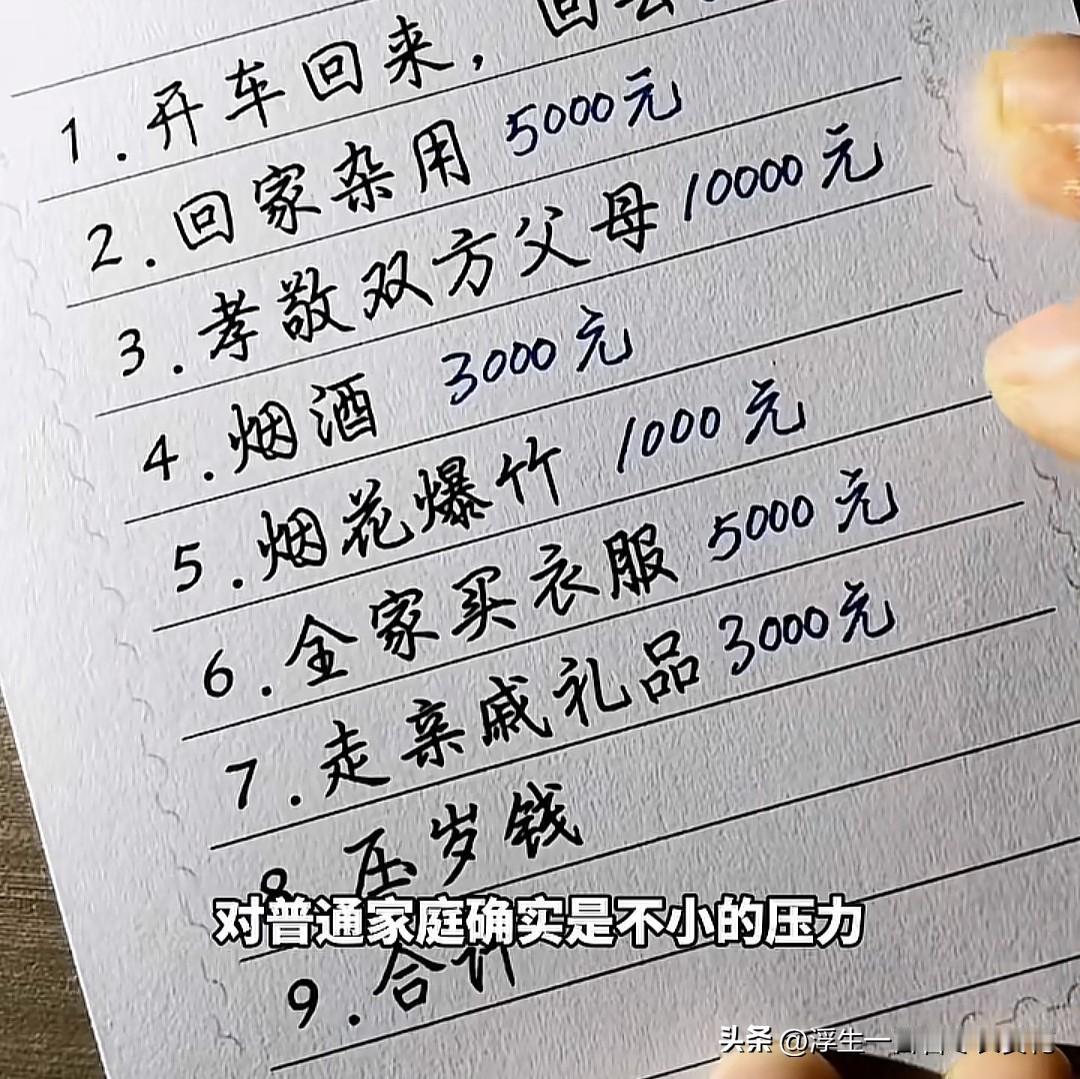 1.开车回来,回去
2.回家杂用 5000元
3.孝敬双方父母 10000元
4.烟酒 3000元
5.烟花爆竹 1000元
6.全家买衣服 5000元
7.走亲戚礼品 3000元
8 压岁钱
对普通家庭确实是不小的压力
9.合计
头条 @浮生一